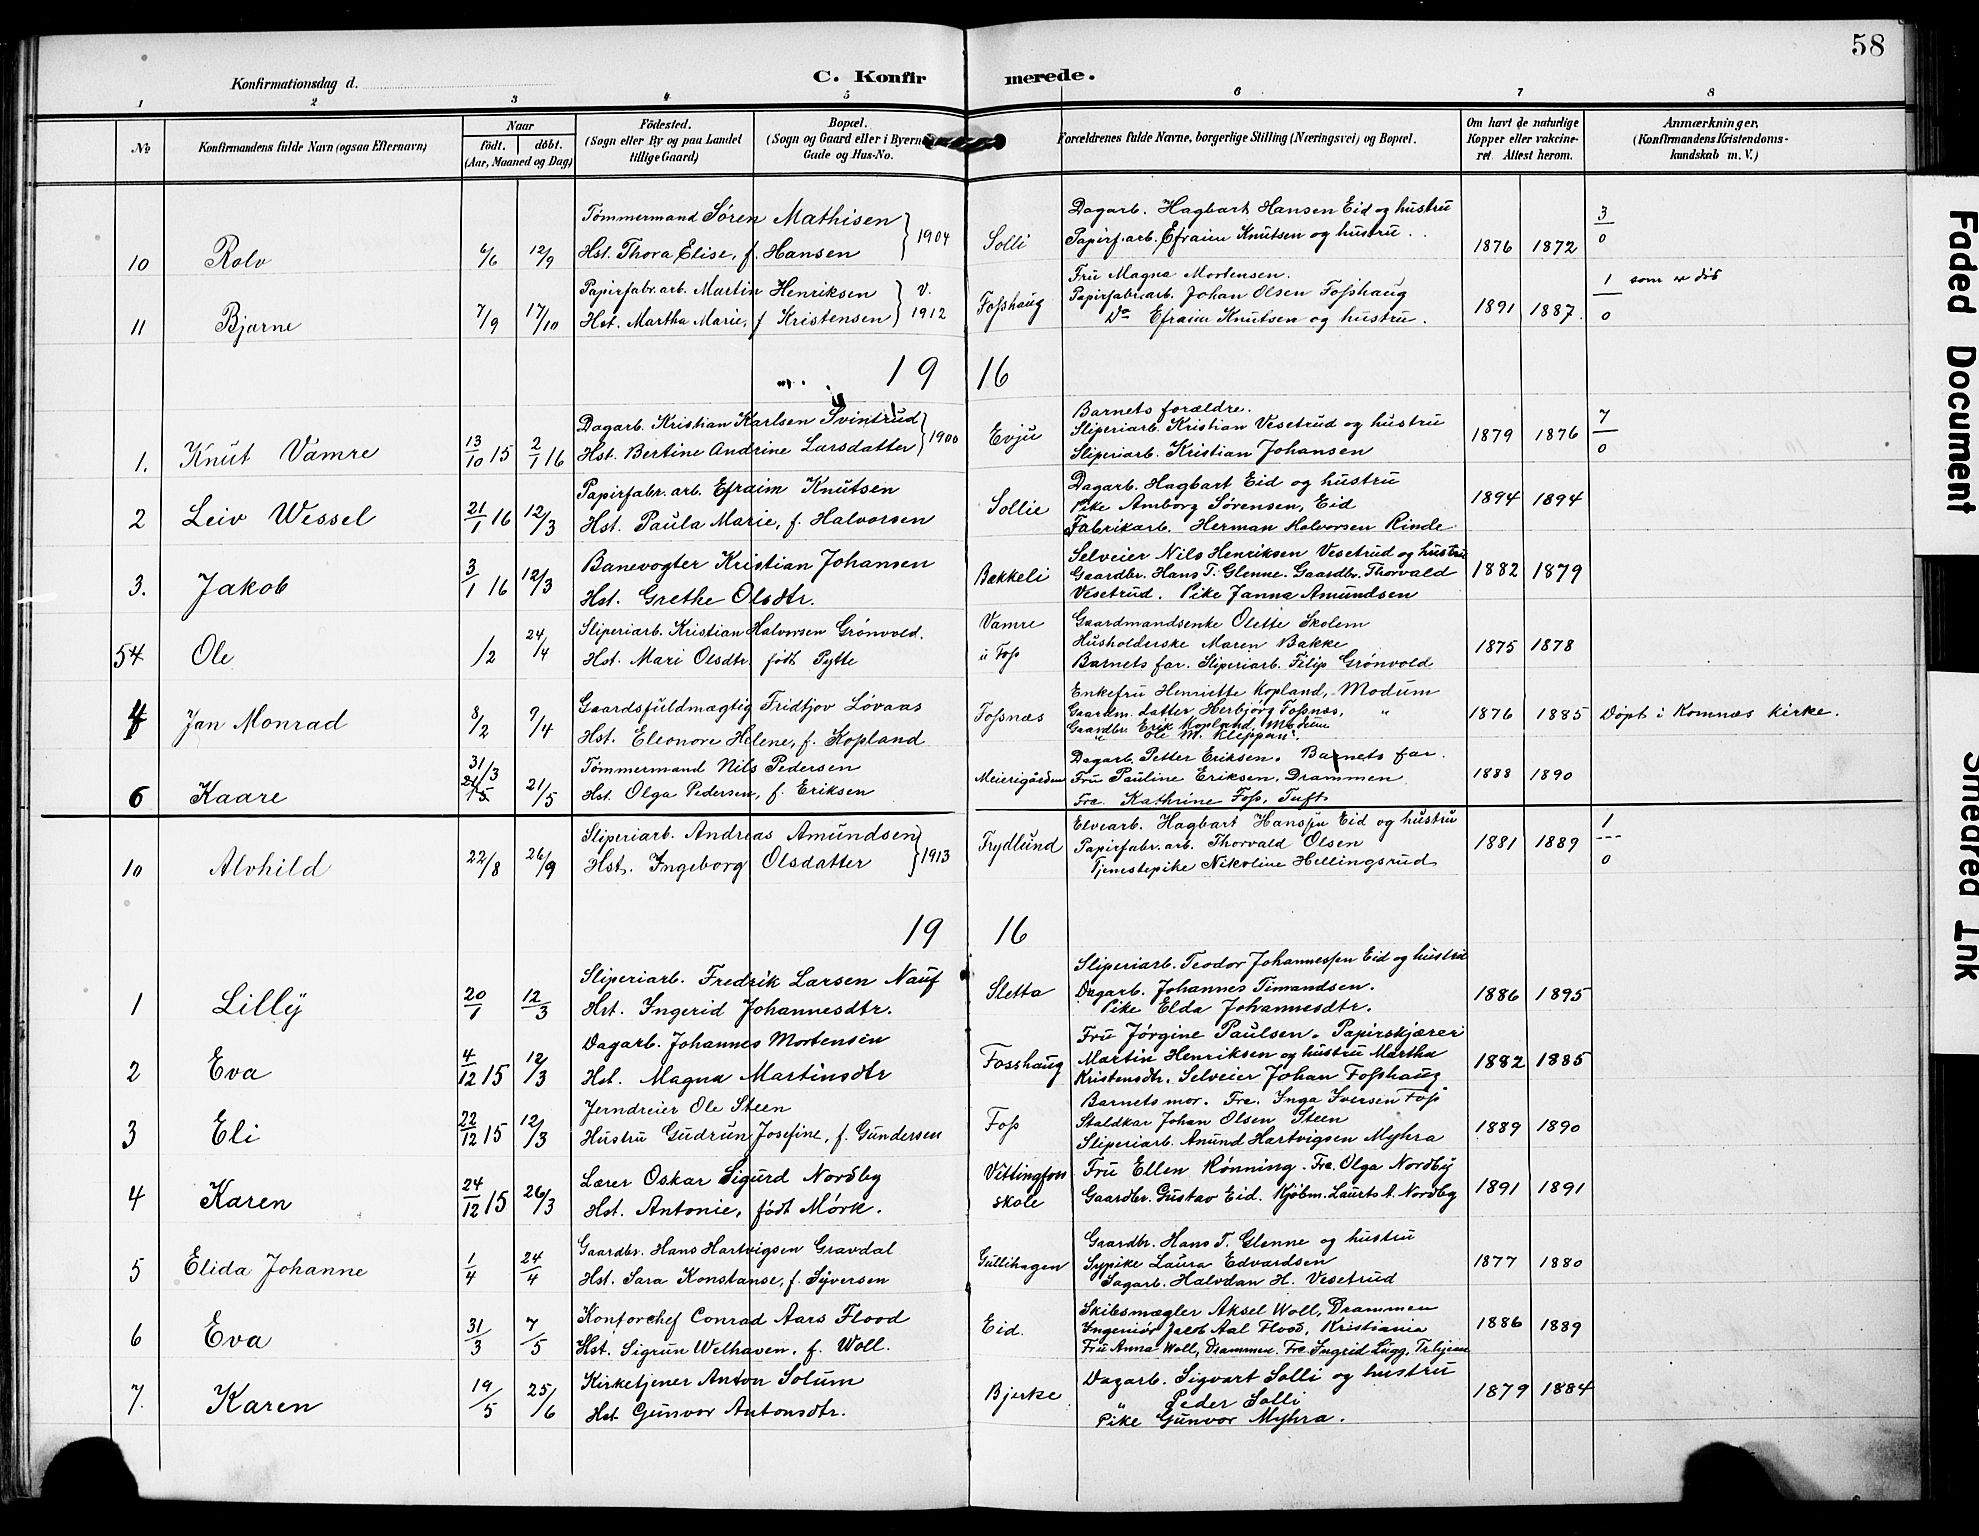 58
Konfirmationsdag d.
C. Konfirmerede.
1 2 3 4 5 6 7 8
No
Konfirmandens fulde Navn (ogsaa Efternavn)
Naar
født. døbt.
(Aar, Maaned og Dag)
Fødested.
(Sogn eller By og paa Landet
tillige Gaard)
Bopæl.
(Sogn og Gaard eller i Byerne
Gade og Hus-No.
Forældrenes fulde Navne, borgerlige Stilling (Næringsvei) og Bopæl.
Om havt de naturlige
Kopper eller vakcine-
ret. Attest herom.
Anmærkninger,
(Konfirmandens Kristendoms-
kundskab m. V.)
Tømmermand Søren Mathisen
10 Rolv 6/6 12/9 Hst. Thora Elise, f. Hansen 1904 Solli
Dagarb. Hagbart Hansen Eid og hustru
Papirf.arb. Efraim Knutsen og hustru
Fru Magna Mortensen.
1876 1872 3/0
Papirfabr.arb. Martin Henriksen
11 Bjarne 7/9 17/10 Hst. Martha Marie, f Kristensen v. 1912 Fosshaug
Papirfabr.arb. Johan Olsen Fosshaug
Do Efraim Knutsen og hustru.
1891 1887. 1/0 som er død
19 16
Dagarb. Kristian Karlsen Svintrud
1. Knut Vamre 13/10 15 2/1 16 Hst. Bertine Andrine Larsdatter 1900 Evju
Barnets forældre.
Sliperiarb. Kristian Vesetrud og hustru
Sliperiarb. Kristian Johansen
1879 1876 7/0
Papirfabr. arb. Efraim Knutsen
2 Leiv Wessel 21/1 16 12/3 Hst. Paula Marie, f. Halvorsen Sollie
Dagarb. Hagbart Eid og hustru
Pike Amborg Sørensen, Eid
Fabrikarb. Herman Halvorsen Rinde
1894 1894
Banevogter Kristian Johansen
3. Jakob 3/1 16 12/3 Hst. Grethe Olsdtr. Bakkeli
Selveier Nils Henriksen Vesetrud og hustru
Gaardbr. Hans T. Glenne. Gaardbr. Thorvald
Vesetrud. Pike Janna Amundsen
1882 1879
Sliperiarb. Kristian Halvorsen Grønvold.
5 Ole 1/2 24/4 Hst. Mari Olsdtr. født Pytte Vamre
u Foss
Gaardmandsenke Olette Skolem
Husholderske Maren Bakke
Barnets far. Sliperiarb. Filip Grønvold
1875 1878
Gaardsfuldmægtig Fridtjov Løvaas
4 Jan Monrad 8/2 9/4 Hst. Eleonore Helene, f. Kopland Fossnæs
Enkefru Henriette Kopland, Modum
Gaardm. datter Herbjørg Fossnæs, "
Gaardbr. Erik Kopland, Modum
" Ole M. Kleppan".
1876 1885 Døpt i Komnæs kirke.
Tømmermand Nils Pedersen
6 Kaare 31/3 21/5 Hst. Olga Pedersen, f. Eriksen Meierigården
Dagarb. Petter Eriksen. Barnets far.
Fru Pauline Eriksen, Drammen
Frø. Kathrine Foss, Tufts
1888 1890
Sliperiarb. Andreas Amundsen
10 Alvhild 22/8 26/9 Hst. Ingeborg Olsdatter 1913 Frydlund
Elvearb. Hagbart Hansen Eid og hustru
Papirfabr.arb. Thorvald Olsen
Tjenestepike Nikoline Hellingsrud
1881 1889 1/0
19 16
Sliperiarb. Fredrik Larsen Nauf
1 Lilly 20/1 12/3 Hst. Ingerid Johannesdtr. Sletta
Sliperiarb. Teodor Johannessen Eid og hustru
Dagarb. Johannes Timandsen.
Pike Elda Johannesdtr.
1886 1895
Dagarb. Johannes Mortensen
2 Eva 4/12 15 12/3 Hst. Magna Martinsdtr Fosshaug
Fru Jørgine Paulsen. Papirskjærer
Martin Henriksen og hustru Martha
Kristensdtr. Selveier Johan Fosshaug
1882 1885
Jerndreier Ole Steen
3 Eli 22/12 15 12/3 Hustru Gudrun Josefine, f. Gundersen Foss
Barnets mor. Frø. Inga Iversen Foss
Staldkar Johan Olsen Steen
Sliperiarb. Anund Hartvigsen Myhra
1889 1890
Lærer Oskar Sigurd Nordby
4 Karen 24/12 15 26/3 Hst. Antonie, født Mørk. Vittingfoss
skole
Fru Ellen Rønning. Frø. Olga Nordby
Gaardbr. Gustav Eid. Kjøbm. Laurts A. Nordby
1891 1891
Gaardbr. Hans Hartvigsen Gravdal
5 Elida Johanne 1/4 24/4 Hst. Sara Konstanse, f. Syversen Gullihagen
Gaardbr. Hans T. Glenne og hustru
Sypike Laura Edvardsen
Sagarb. Halvdan H. Vesetrud
1877 1880
Kontorchef Conrad Aars Flood
6 Eva 31/3 7/5 Hst. Sigrun Welhaven, f. Woll. Eid.
Skibsmægler Aksel Woll, Drammen
Ingeniør Jacob Aal Flood, Kristiania
Fru Anna Woll, Drammen. Frø. Ingrid Lugg,
1886 1889
Kirketjener Anton Solum
7. Karen 19/5 25/6 Hst Gunvor Antonsdtr. Bjerke
Dagarb. Sigvart Solli og hustru
" Peder Solli
Pike Gunvor Myhra.
1879 1884
Faded Document
Smeared Ink